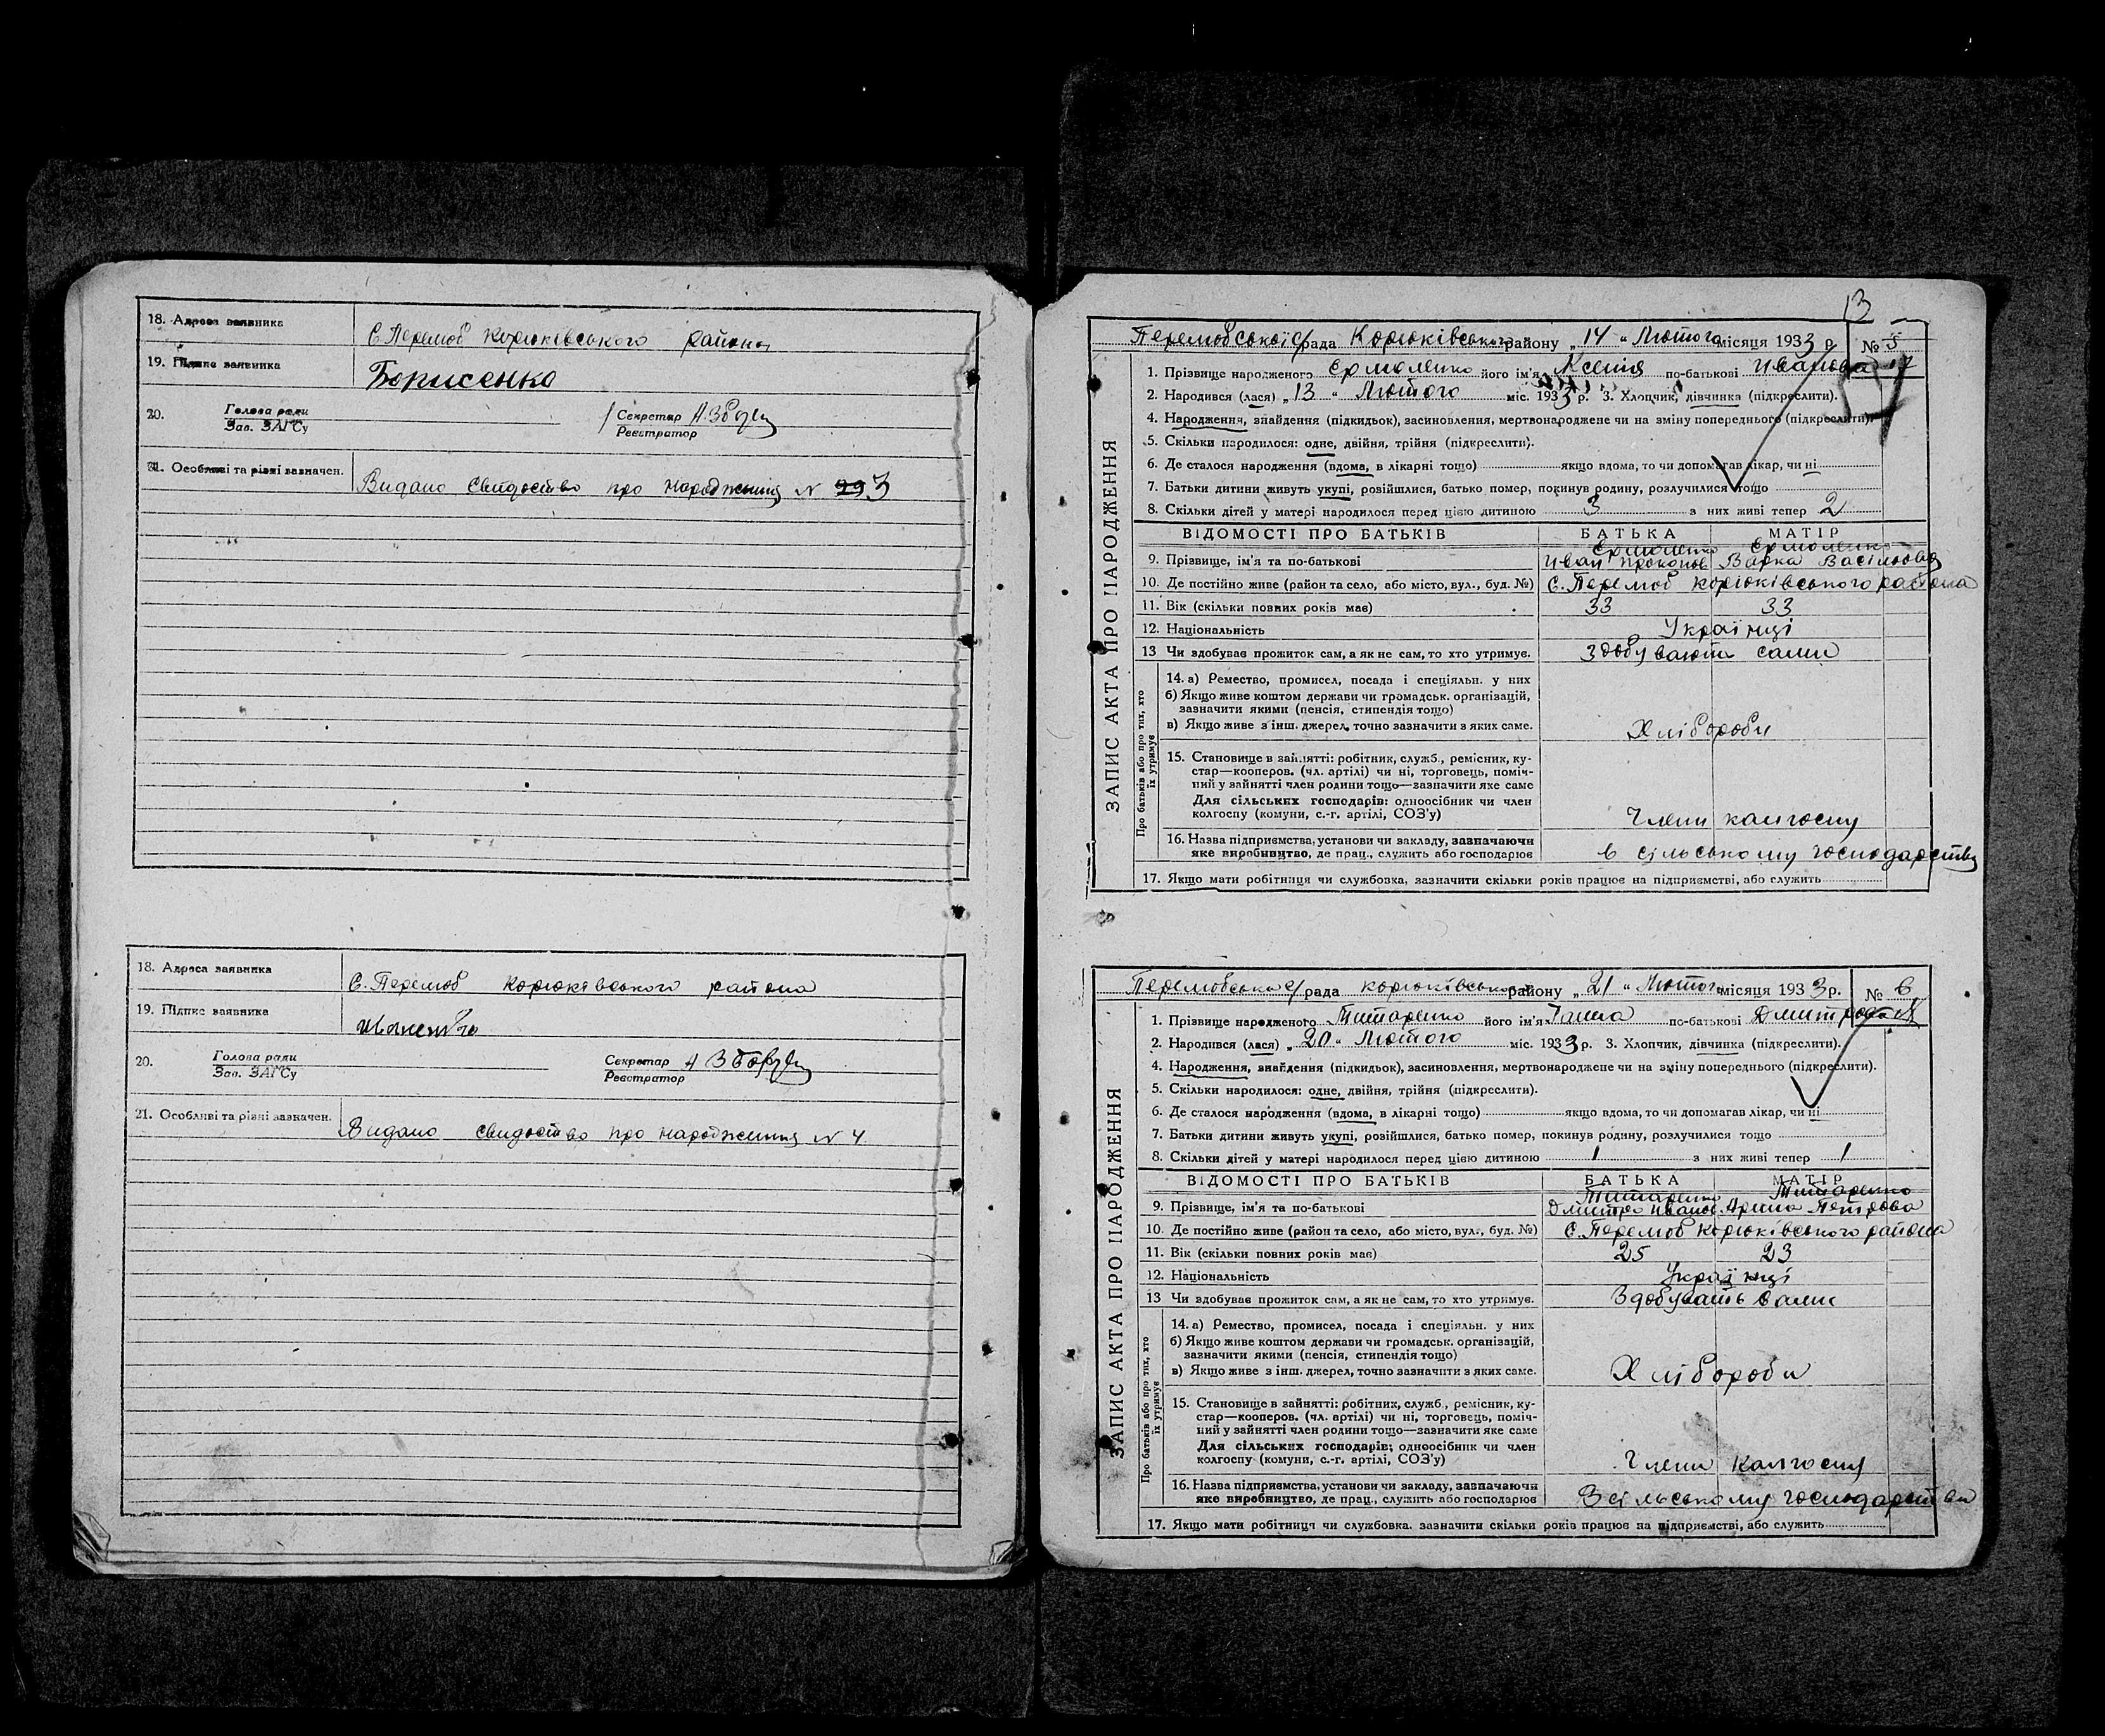 18. Адреса заявника С. Перемоб Корюківського района
19. Підпис заявника Борисенко
20. Голова ради
Зав. ЗАГСу
Секретар
Реєстратор
21. Особливі та різні зазначен. Видано свидоство про народження N 3
18. Адреса заявника С. Перемоб Корюківського района
19. Підпис заявника
20. Голова ради
Зав. ЗАГСу
Секретар
Реєстратор
21. Особливі та різні зазначен. Видано свидоство про народження N 4
13
ЗАПИС АКТА ПРО НАРОДЖЕННЯ
Перемобської с/рада Корюківського району „14“ Лютого місяця 1933 р. № 5
1. Прізвище народженого Єрмоленко його ім'я Ксенія по-батькові Иванова
2. Народився (лася) „13“ Лютого міс. 1933 р. 3. Хлопчик, дівчинка (підкреслити).
4. Народження, знайдення (підкидьок), засиновлення, мертвонароджене чи на зміну попереднього (підкреслити).
5. Скільки народилося: одне, двійня, трійня (підкреслити).
6. Де сталося народження (вдома, в лікарні тощо) якщо вдома, то чи допомагав лікар, чи ні
7. Батьки дитини живуть укупі, розійшлися, батько помер, покинув родину, розлучилися тощо
8. Скільки дітей у матері народилося перед цією дитиною 3 з них живі тепер 2
ВІДОМОСТІ ПРО БАТЬКІВ БАТЬКА МАТІР
Єрмоленко Єрмоленко
9. Прізвище, ім'я та по-батькові Иван Прокопов Варка Васільова
10. Де постійно живе (район та село, або місто, вул., буд. №) С. Перемоб Корюківського района
11. Вік (скільки повних років має) 33 33
12. Національність Українці
13 Чи здобуває прожиток сам, а як не сам, то хто утримує. Здобувають сами
Про батьків або про тих, хто їх утримує
14. а) Ремество, промисел, посада і спеціяльн. у них
б) Якщо живе коштом держави чи громадськ. організацій,
зазначити якими (пенсія, стипендія тощо)
в) Якщо живе з інш. джерел, точно зазначити з яких саме. Хлібороби
15. Становище в зайнятті: робітник, служб., ремісник, ку-
стар—кооперов. (чл. артілі) чи ні, торговець, поміч-
ний у зайнятті член родини тощо—зазначити яке саме
Для сільських господарів: одноосібник чи член
колгоспу (комуни, с.-г. артілі, СОЗ'у) Члени калгоспу
16. Назва підприємства, установи чи закладу, зазначаючи
яке виробництво, де прац., служить або господарює в сільському господарству
17. Якщо мати робітниця чи службовка, зазначити скільки років працює на підприємстві, або служить
ЗАПИС АКТА ПРО НАРОДЖЕННЯ
Перемобська с/рада Корюківського району „21“ Лютого місяця 1933 р. № 6
1. Прізвище народженого Титаренко його ім'я Ганна по-батькові
2. Народився (лася) „20“ Лютого міс. 1933 р. 3. Хлопчик, дівчинка (підкреслити).
4. Народження, знайдення (підкидьок), засиновлення, мертвонароджене чи на зміну попереднього (підкреслити).
5. Скільки народилося: одне, двійня, трійня (підкреслити).
6. Де сталося народження (вдома, в лікарні тощо) якщо вдома, то чи допомагав лікар, чи ні
7. Батьки дитини живуть укупі, розійшлися, батько помер, покинув родину, розлучилися тощо
8. Скільки дітей у матері народилося перед цією дитиною 1 з них живі тепер 1
ВІДОМОСТІ ПРО БАТЬКІВ БАТЬКА МАТІР
Титаренко Титаренко
9. Прізвище, ім'я та по-батькові Дмитро Иванов Арина Петрова
10. Де постійно живе (район та село, або місто, вул., буд. №) С. Перемоб Корюківського района
11. Вік (скільки повних років має) 25 23
12. Національність Українці
13 Чи здобуває прожиток сам, а як не сам, то хто утримує. Здобувать сами
Про батьків або про тих, хто їх утримує
14. а) Ремество, промисел, посада і спеціяльн. у них
б) Якщо живе коштом держави чи громадськ. організацій,
зазначити якими (пенсія, стипендія тощо)
в) Якщо живе з інш. джерел, точно зазначити з яких саме. Хлібороби
15. Становище в зайнятті: робітник, служб., ремісник, ку-
стар—кооперов. (чл. артілі) чи ні, торговець, поміч-
ний у зайнятті член родини тощо—зазначити яке саме
Для сільських господарів: одноосібник чи член
колгоспу (комуни, с.-г. артілі, СОЗ'у) Члени калгоспу
16. Назва підприємства, установи чи закладу, зазначаючи
яке виробництво, де прац., служить або господарює В сільському господарстви
17. Якщо мати робітниця чи службовка, зазначити скільки років працює на підприємстві, або служить